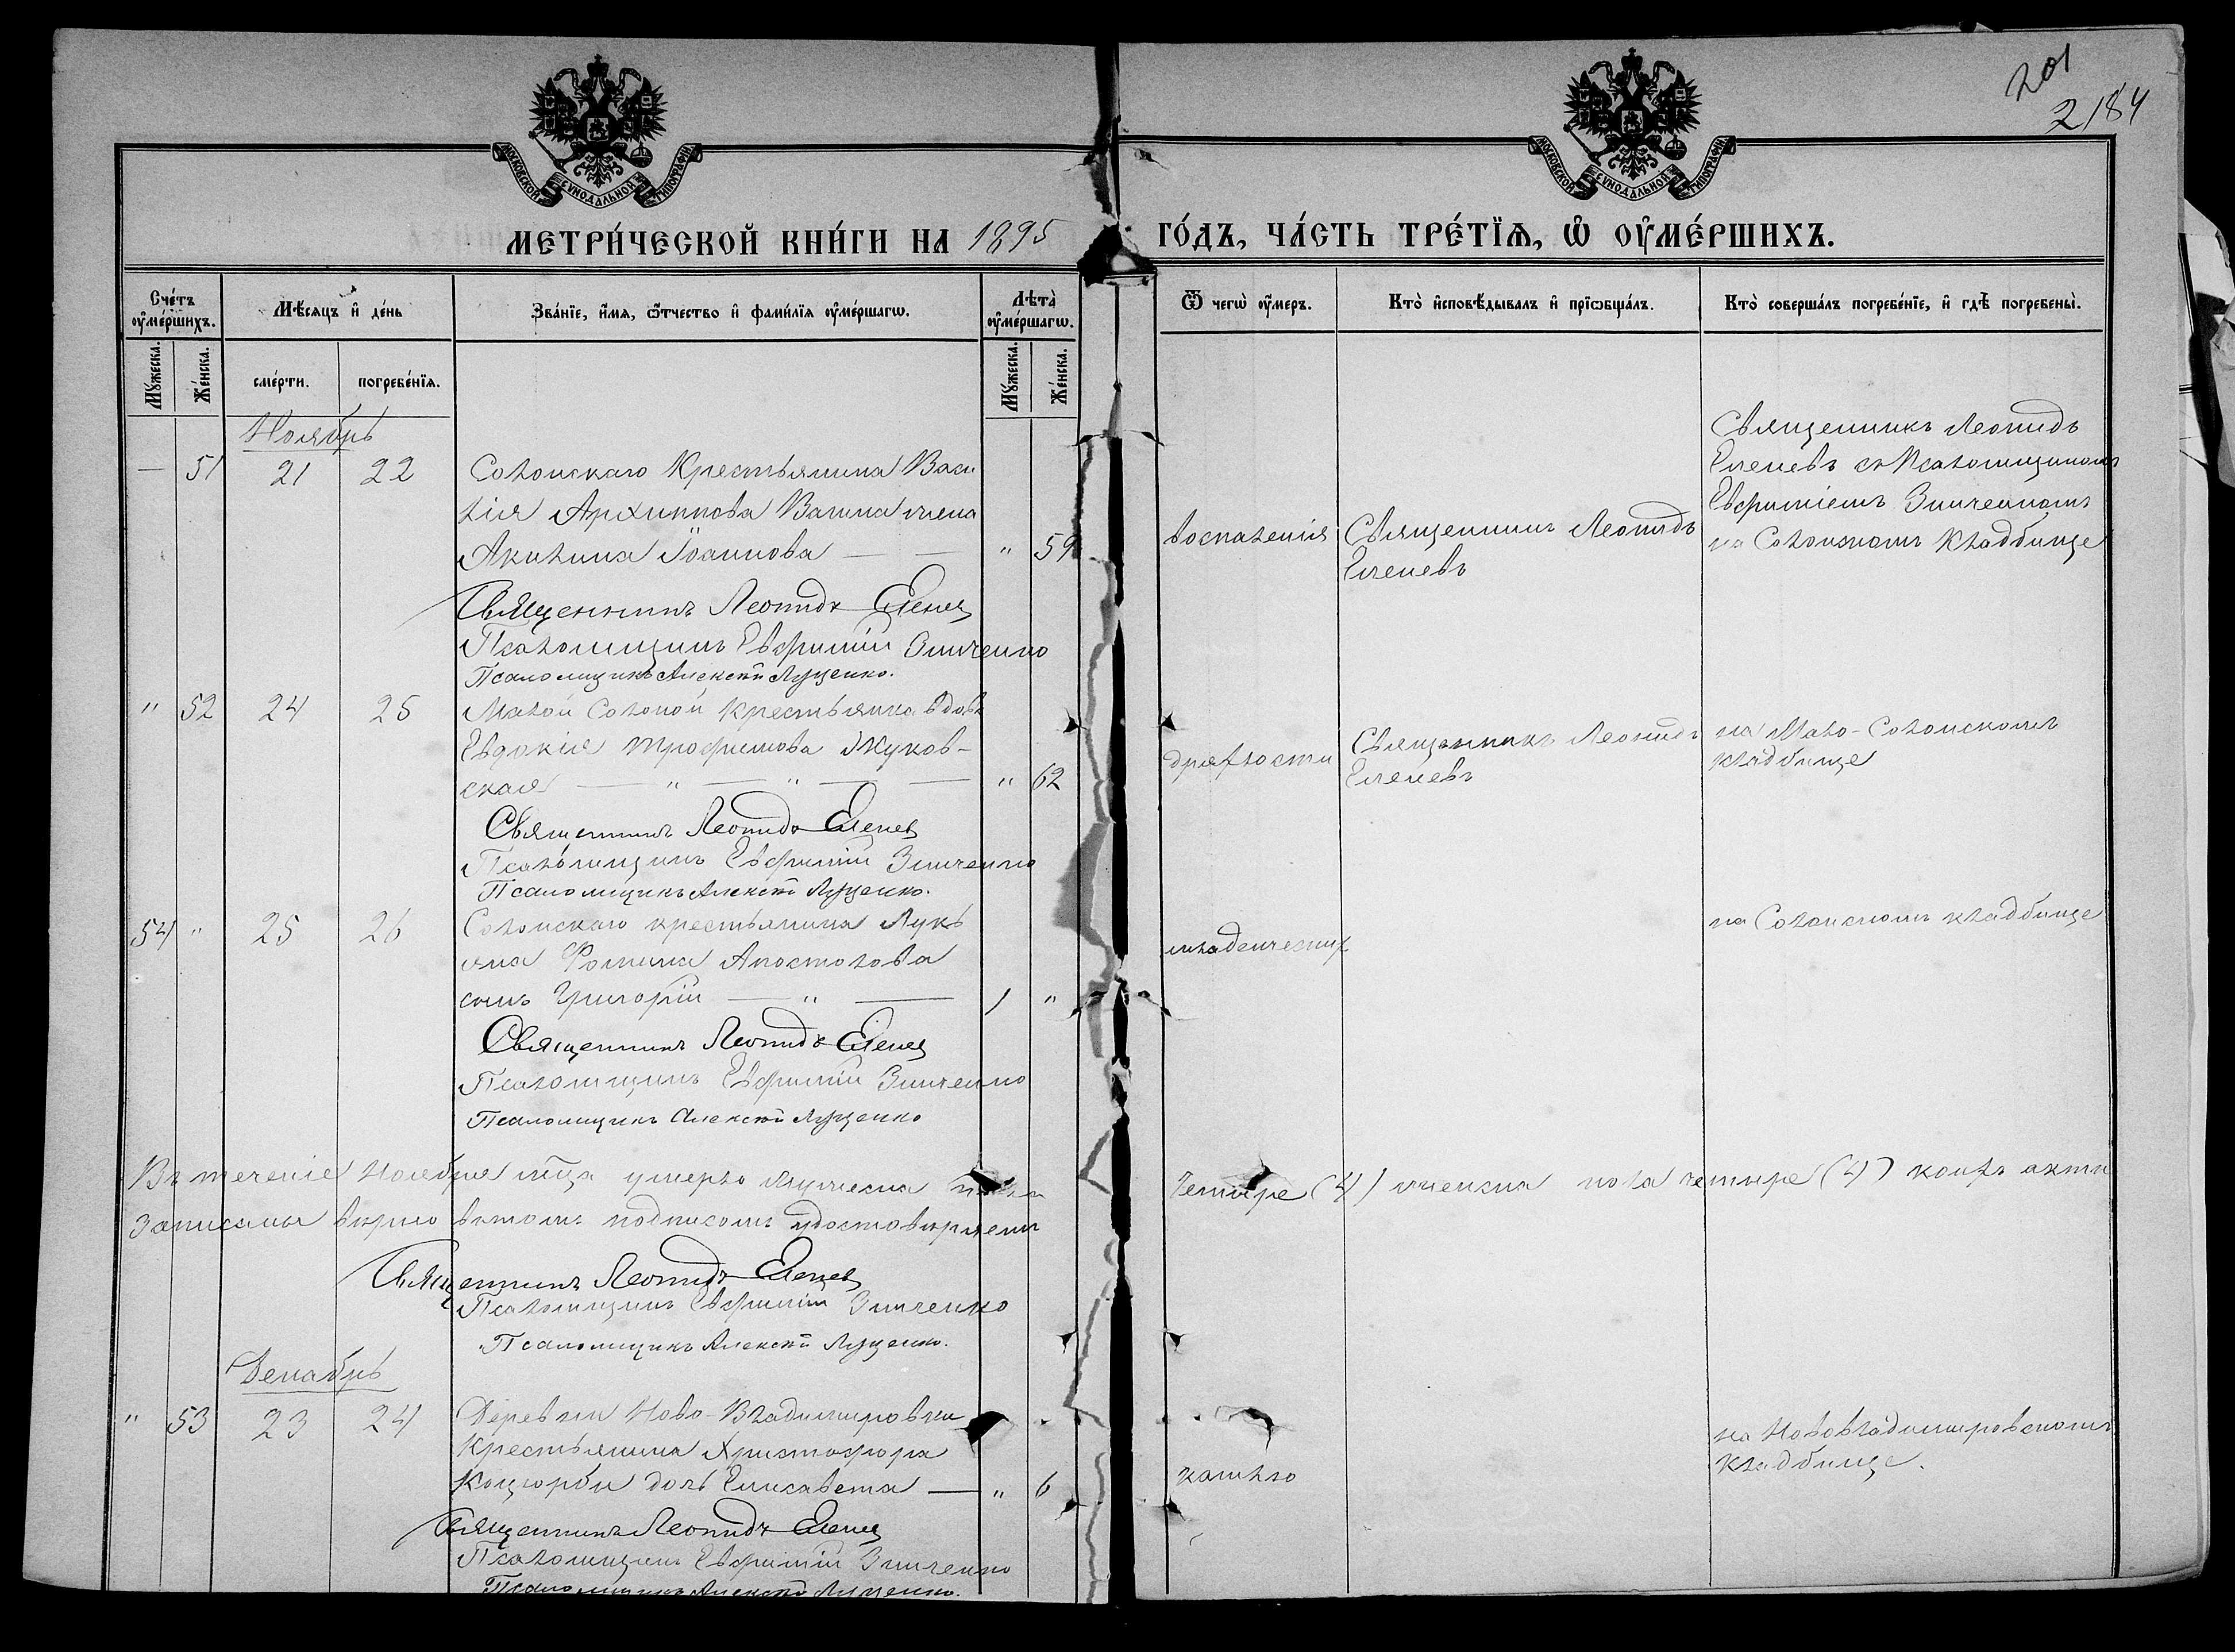 201
2184
МОСКОВСКОЙ СѴНОДАЛЬНОЙ ТИПОГРАФІИ
МОСКОВСКОЙ СѴНОДАЛЬНОЙ ТИПОГРАФІИ
МЕТРИ́ЧЕСКОЙ КНИ́ГИ НА 1895 ГО́ДЪ, ЧА́СТЬ ТРЕ́ТЇѦ, Ѡ҆ ОУ҆МЕ́РШИХЪ.
Сче́тъ оу҆ме́ршихъ.
Мѣ́сяцъ и҆ де́нь
Зва́нїе, и҆́мя, ѻ҆́тчество и҆ фами́лїя оу҆ме́ршагѡ.
Лѣта̀ оу҆ме́ршагѡ.
Ѿ чегѡ̀ оу҆́меръ.
Кто̀ и҆сповѣ́дывалъ и҆ прїѡбща́лъ.
Кто̀ соверша́лъ погребе́нїе, и҆ гдѣ̀ погребены̀.
Мꙋ́жеска.
Же́нска.
сме́рти.
погребе́нїя.
Мꙋ́жеска.
Же́нска.
Ноябрь
— 51 21 22 Солонскаго Крестьянина Васи
лія Архиппова Вагина жена
Акилина Іоаннова — — " 59
воспаленія
Священникъ Леонидъ
Еленевъ
Священникъ Леонидъ
Еленевъ съ Псаломщикомъ
Евфиміемъ Зинченкомъ
на Солонскомъ Кладбище
Священникъ Леонидъ Еленев
Псаломщикъ Евфимій Зинченко
Псаломщикъ Алексѣй Луценко.
" 52 24 25 Малой Солоной крестьянка вдова
Евдокія Трофимова Жуков-
ская — " — " — — " 62
дряхлости
Священникъ Леонидъ
Еленевъ
на Мало-Солонскомъ
кладбище
Священникъ Леонидъ Еленев
Псаломщикъ Евфимій Зинченко
Псаломщикъ Алексѣй Луценко.
54 " 25 26 Солонскаго крестьянина Лукь
яна Фомина Апостолова
сынъ Григорій — " — 1 "
младенческих
на Солонскомъ кладбище
Священникъ Леонидъ Еленев
Псаломщикъ Евфимій Зинченко
Псаломщикъ Алексѣй Луценко
Въ теченіе Ноября мѣсяца умерло мужеска пола Четыре (4) женска пола четыре (4) коихъ акты
записаны вѣрно въ томъ подписомъ удостовѣряемъ
Священникъ Леонидъ Еленев
Псаломщикъ Евфимій Зинченко
Псаломщикъ Алексѣй Луценко.
Декабрь
" 53 23 24 Деревни Ново-Владимировки
Крестьянина Христофора
Коцюрбы дочь Елисавета — " 6
кашлю
на Нововладимировскомъ
Кладбище.
Священникъ Леонидъ Еленев
Псаломщикъ Евфимій Зинченко
Псаломщикъ Алексѣй Луценко.